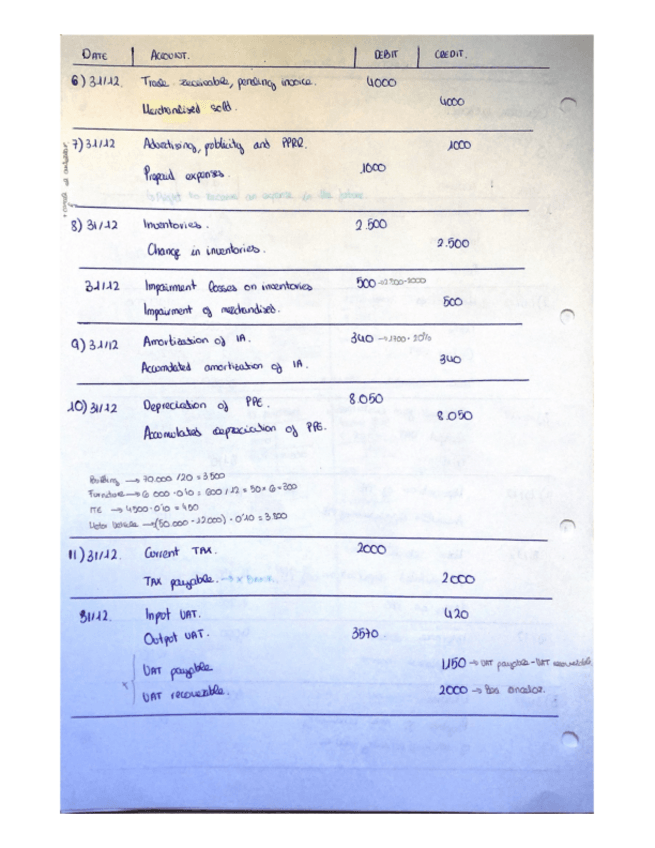 DATE ACCOUNT. DEBIT CREDIT.
6) 31/12. Trade receivable, pending invoice. 4000
Merchandised sold. 4000
7) 31/12 Advertising, publicity and PPRR. 1000
Prepaid expenses. 1000
↳ Right to receive an expense in the future.
8) 31/12 Inventories. 2.500
Change in inventories. 2.500
31/12 Impairment losses on inventories 500
Impairment of merchandised. 500
9) 31/12 Amortization of IA. 340 → 1700 · 20%
Accomulated amortization of IA. 340
10) 31/12 Depreciation of PPE. 8.050
Accomulated depreciation of PPE. 8.050
Building → 70.000 / 20 = 3500
Furniture → 6 000 · 0'10 = 600 / 12 = 50 × 6 = 300
→ 4500 · 0'10 = 450
Motor Vehicle → (50.000 - 12.000) · 0'10 = 3.800
11) 31/12. Current TAX. 2000
TAX payable. 2000
31/12. Input VAT. 420
Output VAT. 3570.
VAT payable 1,150 → VAT payable - VAT recoverable.
VAT recoverable. 2000 →